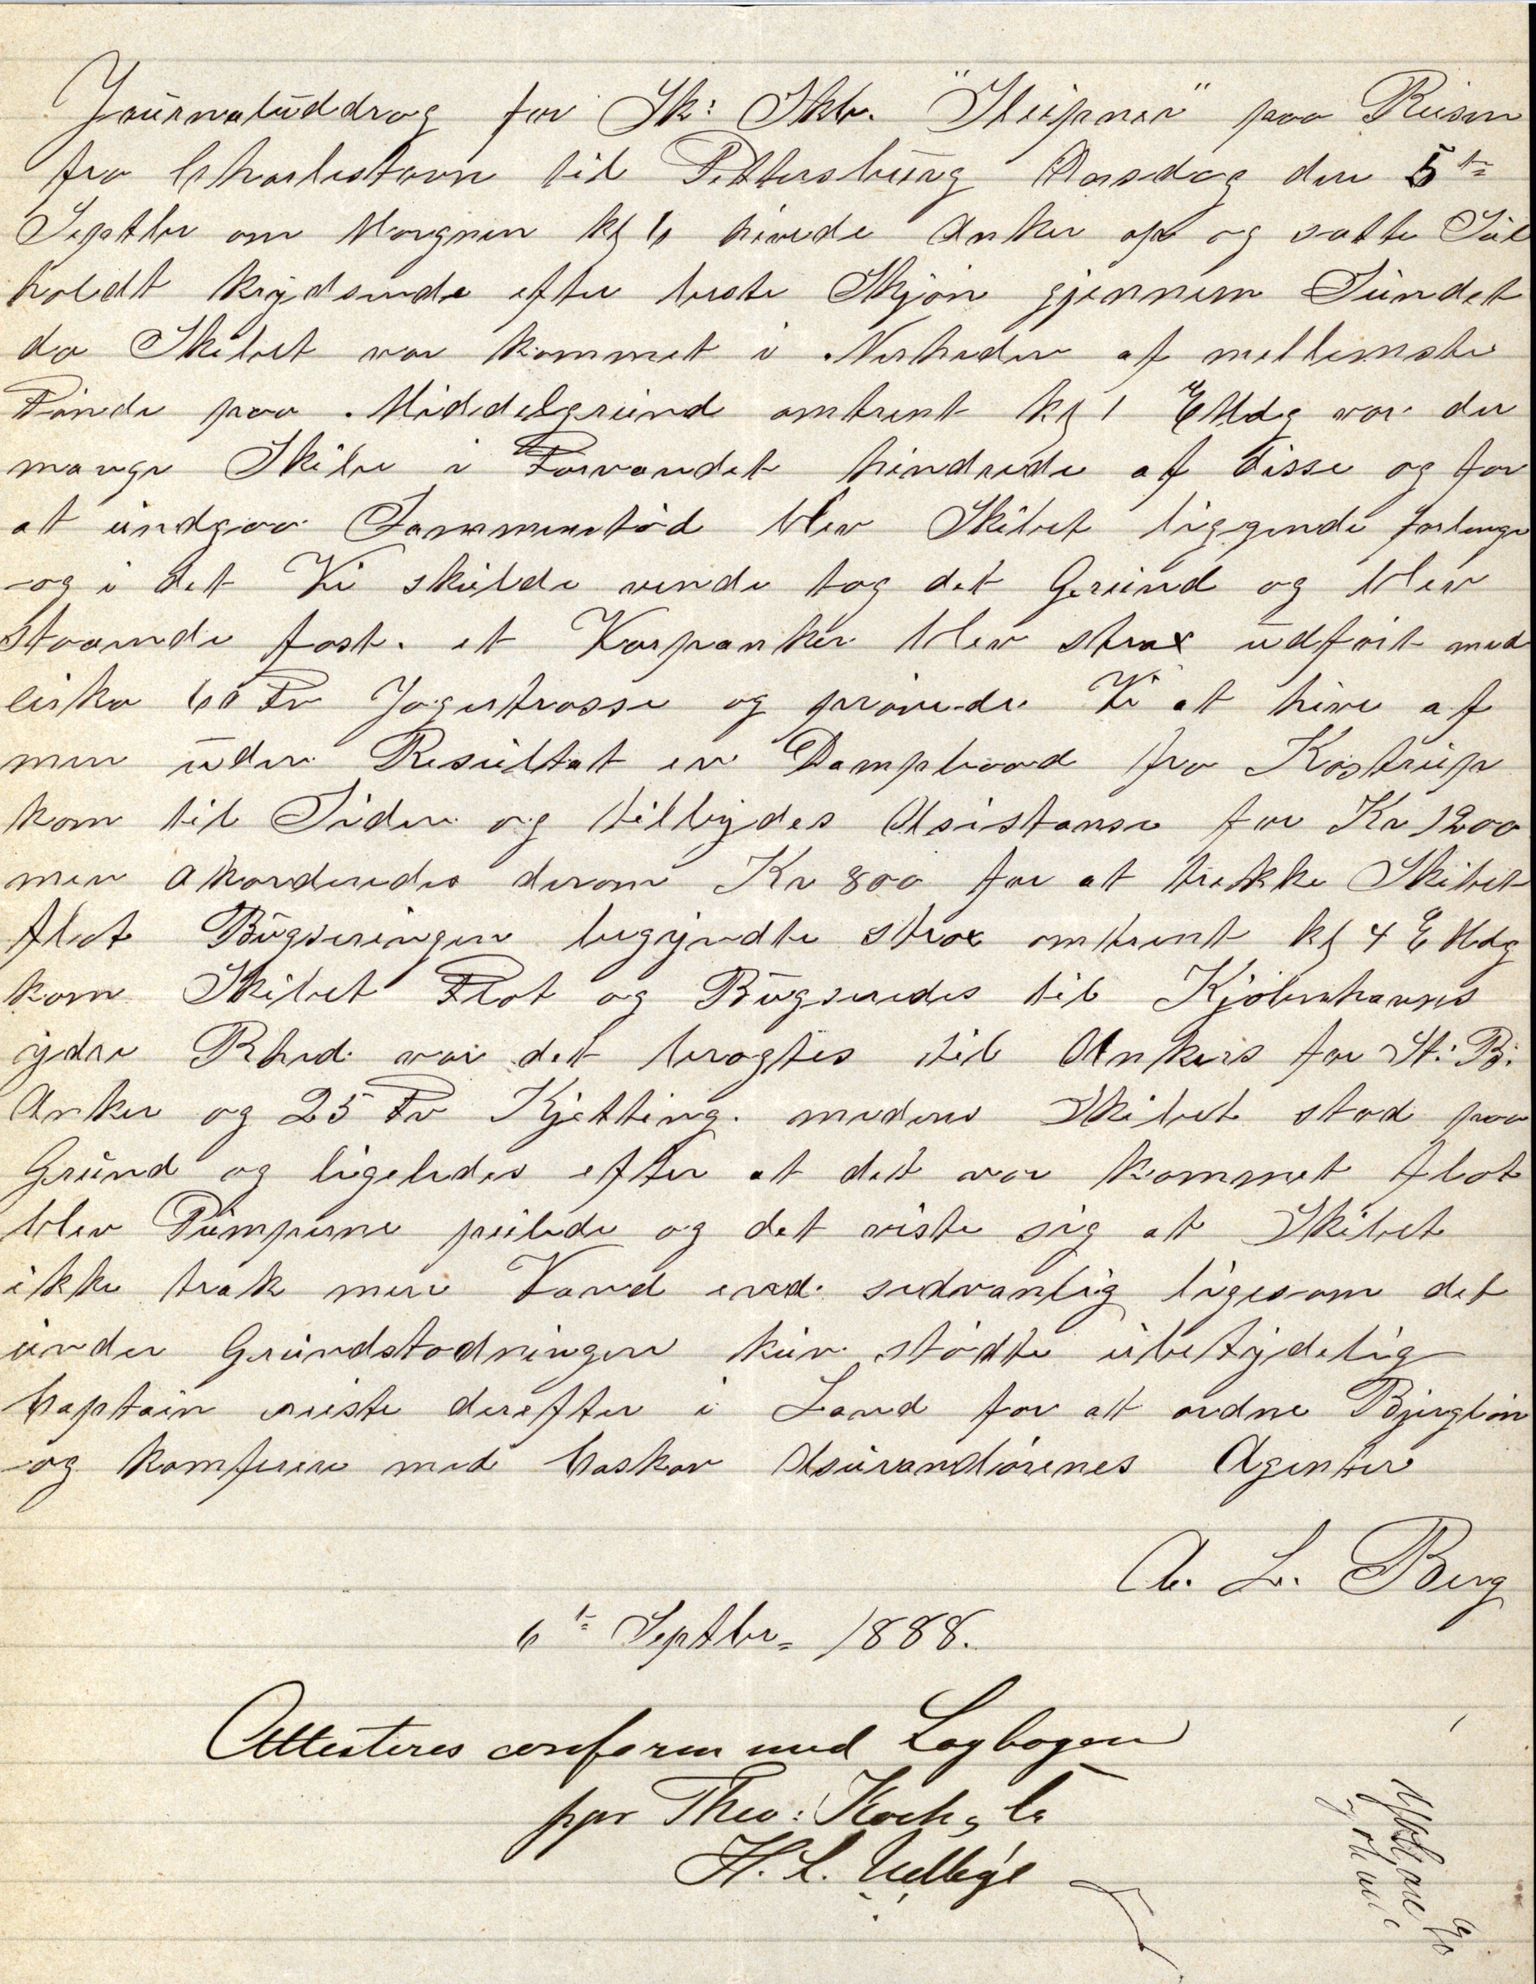 Journaluddrag for Sk: Skb. "Sleipner" paa Reisen
fra Charlestown til Pettersburg Onsdag den 5te
Septbr om Morgnen kl 6 hivede Anker op og satte Seil
holdt krydsende efter beste Skjøn gjennem Sundet
da Skibet var kommet i Nerheden af mellemste
Tønde paa Middelgrund omtrent kl 1 E Mdg var der
mange Skibe i Farvandet hindrede af disse og for
at undgaa Sammenstød blev Skibet liggende forlenge
og i det Vi skulde vende tog det Grund og blev
staaende fast. et Varpanker blev strax udført med
cirka 60 Fv Jagertrosse og prøvede Vi at hive af
men uden Resultat en Dampbaad fra Kastrup
kom til Siden og tilbydes Asistanse for Kr 1200
men akorderedes derom Kr 800 for at trekke Skibet
flot Bugseringen begyndte strax omtrent kl 4 E Mdg
kom Skibet Flot og Bugseredes til Kjøbenhavns
ydre Rhed var det bragtes til Ankers for St: B:
Anker og 25 Fv Kjetting. medens Skibet stod paa
Grund og ligeledes efter at det var kommet flot
blev Pumperne peilede og det viste sig at Skibet
ikke trak mere Vand end sedvanlig ligesom det
under Grundstødningen kun stødte ubetydelig
Captain reiste derefter i Land for at ordne Bjergløn
og komferere med Caskov Asurandørenes Agenter
A. L. Berg
6te Septbr. 1888.
Attesteres conform med Logbogen
ppr Theo: Koch, Co
H. C.